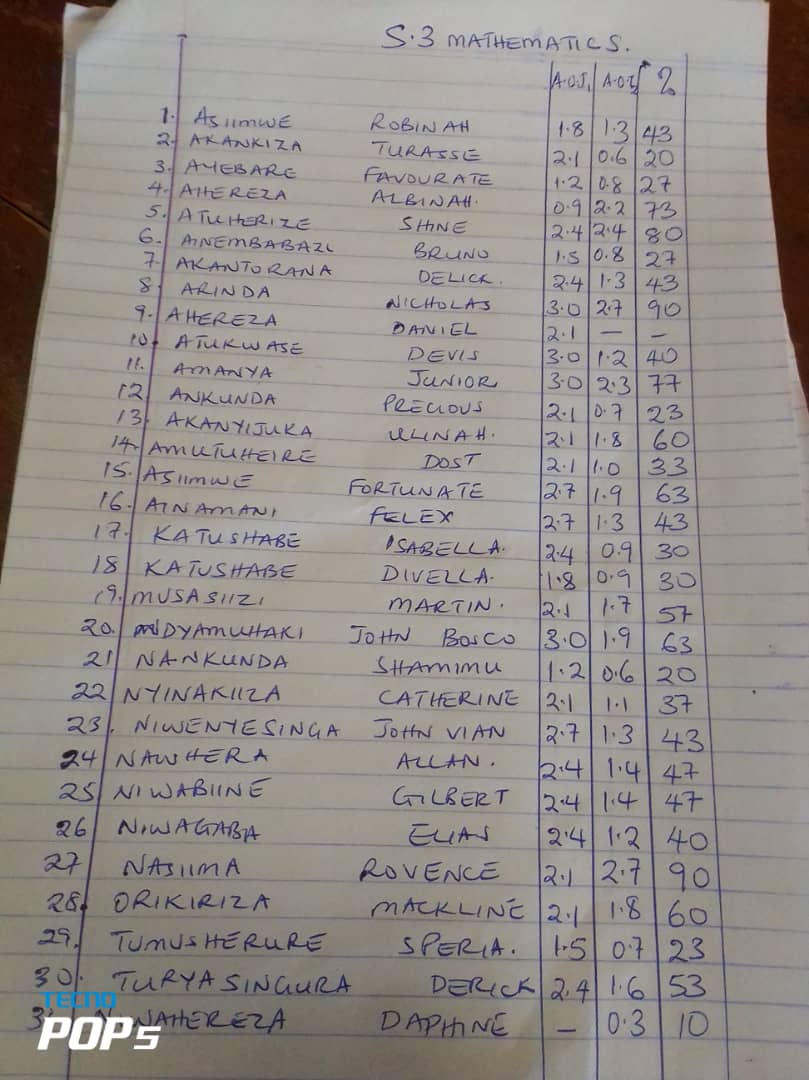 S.3 MATHEMATICS.
A.O.I, A.O.I2 %
1. ASIIMWE ROBINAH 1.8 1.3 43
2. AKANKIZA TURASSE 2.1 0.6 20
3. AYEBARE FAVOURATE 1.2 0.8 27
4. AHEREZA ALBINAH. 0.9 2.2 73
5. ATUHERIZE SHINE 2.4 2.4 80
6. AINEMBABAZI BRUNO 1.5 0.8 27
7. AKANTORANA DELICK. 2.4 1.3 43
8. ARINDA NICHOLAS 3.0 2.7 90
9. AHEREZA DANIEL 2.1 — –
10. ATUKWASE DEVIS 3.0 1.2 40
11. AMANYA JUNIOR 3.0 2.3 77
12 ANKUNDA PRECIOUS 2.1 0.7 23
13. AKANYIJUKA ULINAH. 2.1 1.8 60
14. AMUTUHEIRE DOST 2.1 1.0 33
15. ASIIMWE FORTUNATE 2.7 1.9 63
16. AINAMANI FELEX 2.7 1.3 43
17. KATUSHABE ISABELLA. 2.4 0.9 30
18 KATUSHABE DIVELLA. 1.8 0.9 30
19. MUSASIIZI MARTIN. 2.1 1.7 57
20. NDYAMUHAKI JOHN BOSCO 3.0 1.9 63
21 NANKUNDA SHAMIMU 1.2 0.6 20
22 NYINAKIIZA CATHERINE 2.1 1.1 37
23. NIWENYESINGA JOHN VIAN 2.7 1.3 43
24 NAWHERA ALLAN. 2.4 1.4 47
25 NIWABIINE GILBERT 2.4 1.4 47
26 NIWAGABA ELIAS 2.4 1.2 40
27 NASIIMA ROVENCE 2.1 2.7 90
28. ORIKIRIZA MACKLINE 2.1 1.8 60
29. TUMUSHERURE SPERIA. 1.5 0.7 23
30. TURYASINGURA DERICK 2.4 1.6 53
DAPHINE – 0.3 10
TECNO
POP 5